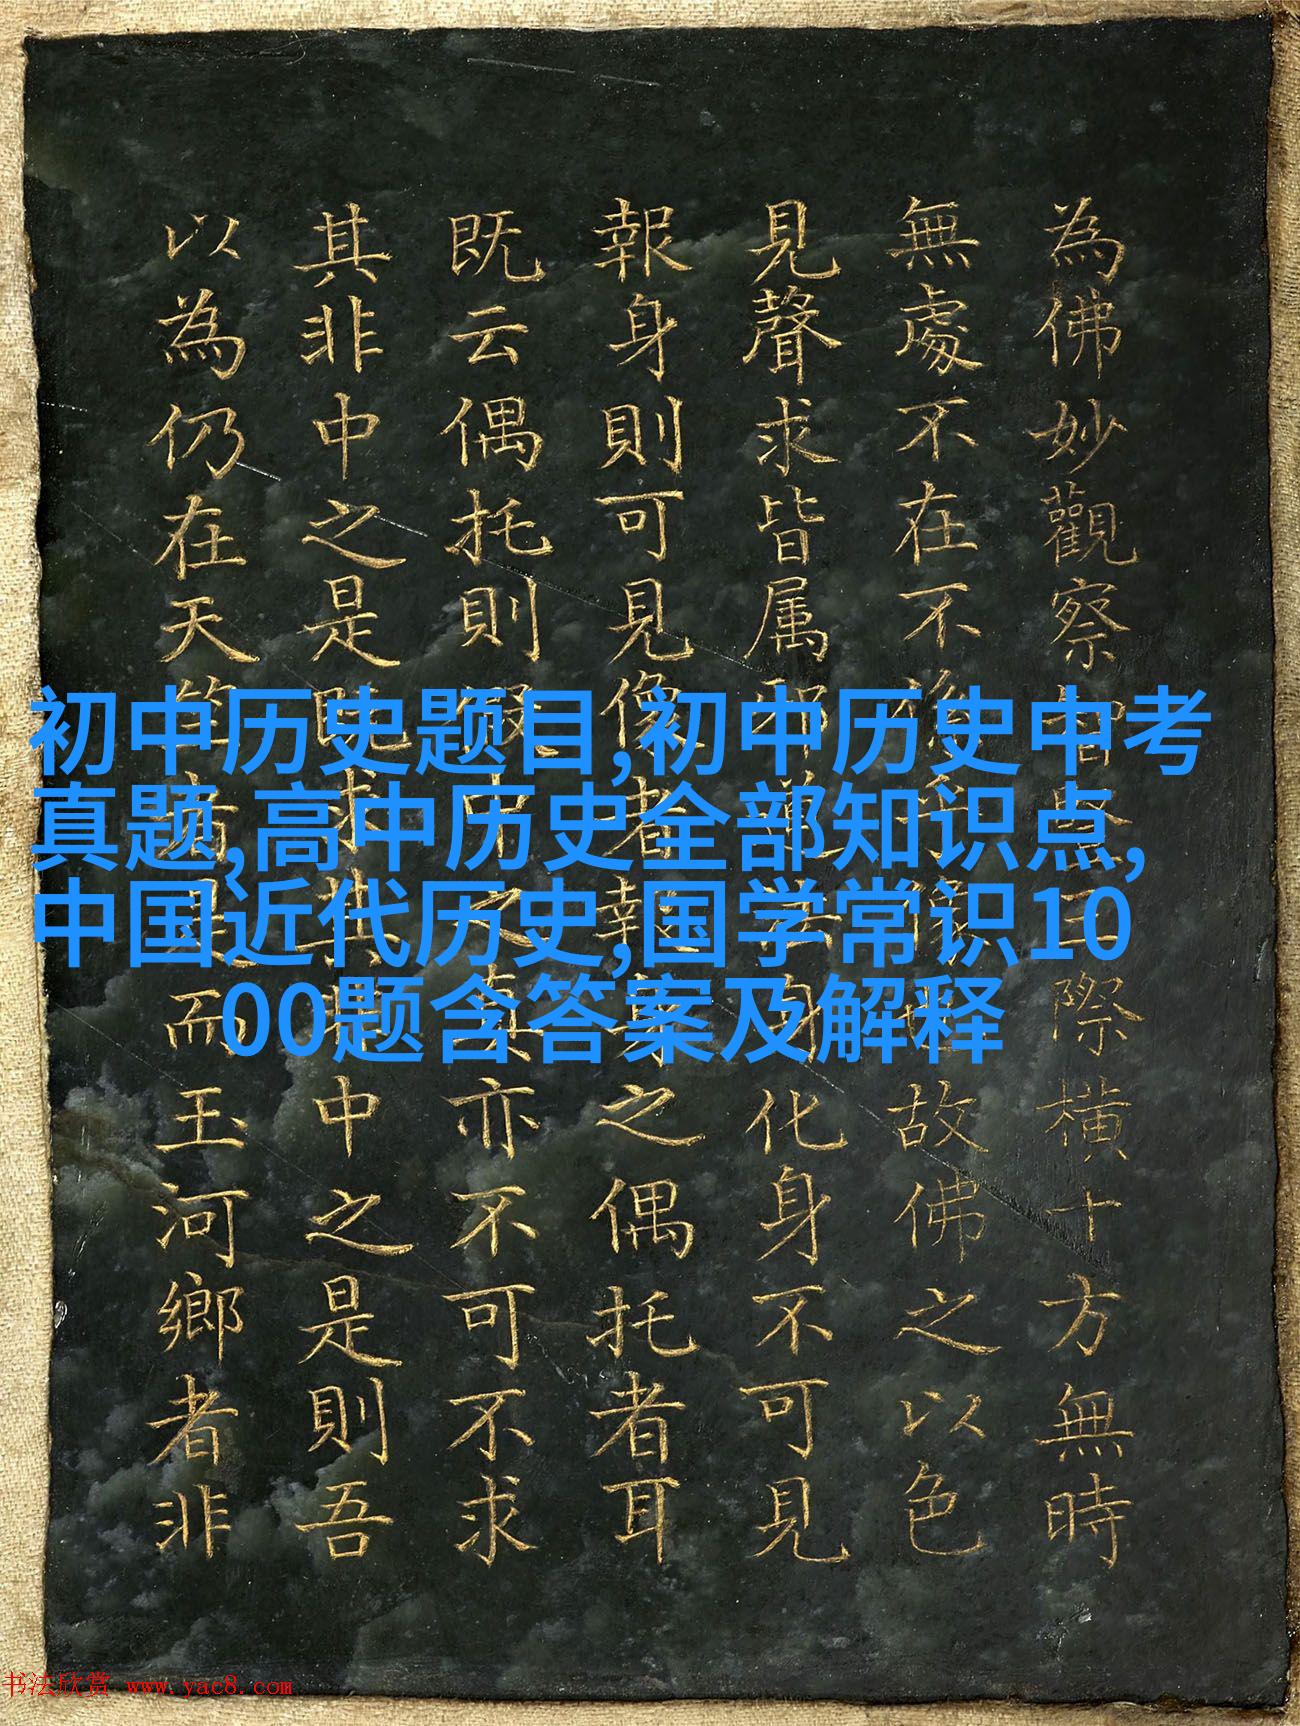 為佛妙觀察智豎三際橫十方無時
無處不在不故佛之以色
見聲求皆属邪道法身化身不可見
報身則可見像者報身之偶托者耳
既云偶托則假中之真亦不可不求
其非中之是既求其是中之是則吾
以為仍在天竺者是而玉河鄉者非
初中历史题目,初中历史中考
真题,高中历史全部知识点,
中国近代历史,国学常识10
00题含答案及解释
书法欣赏 www.yac8.com